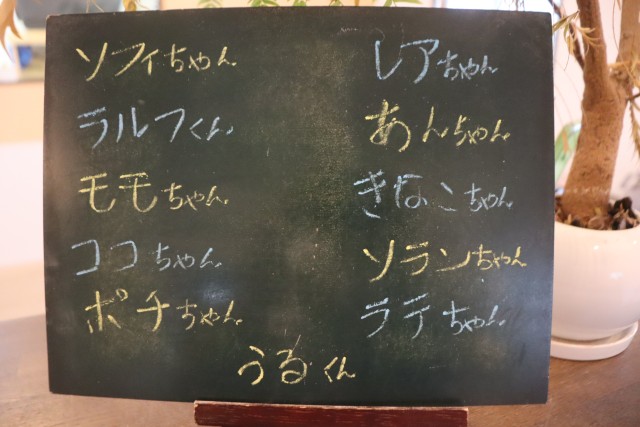 ソフィちゃん
ラルフくん
モモちゃん
ココちゃん
ポチちゃん
レアちゃん
あんちゃん
きなこちゃん
ソランちゃん
ラテちゃん
うるくん